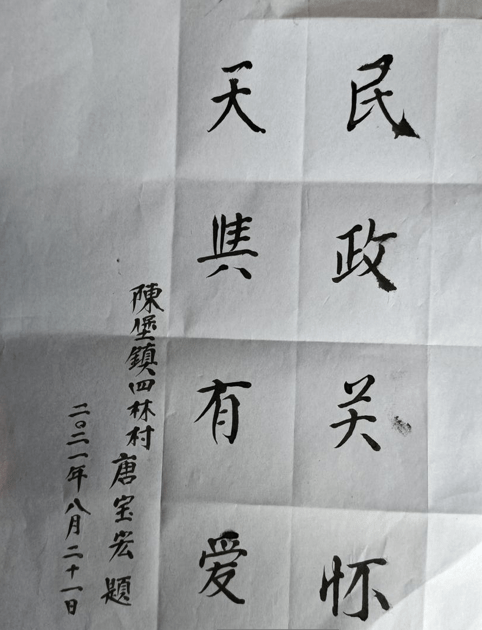 民政关怀
天興有爱
陳堡鎮四林村唐宝宏題
二〇二一年八月二十一日